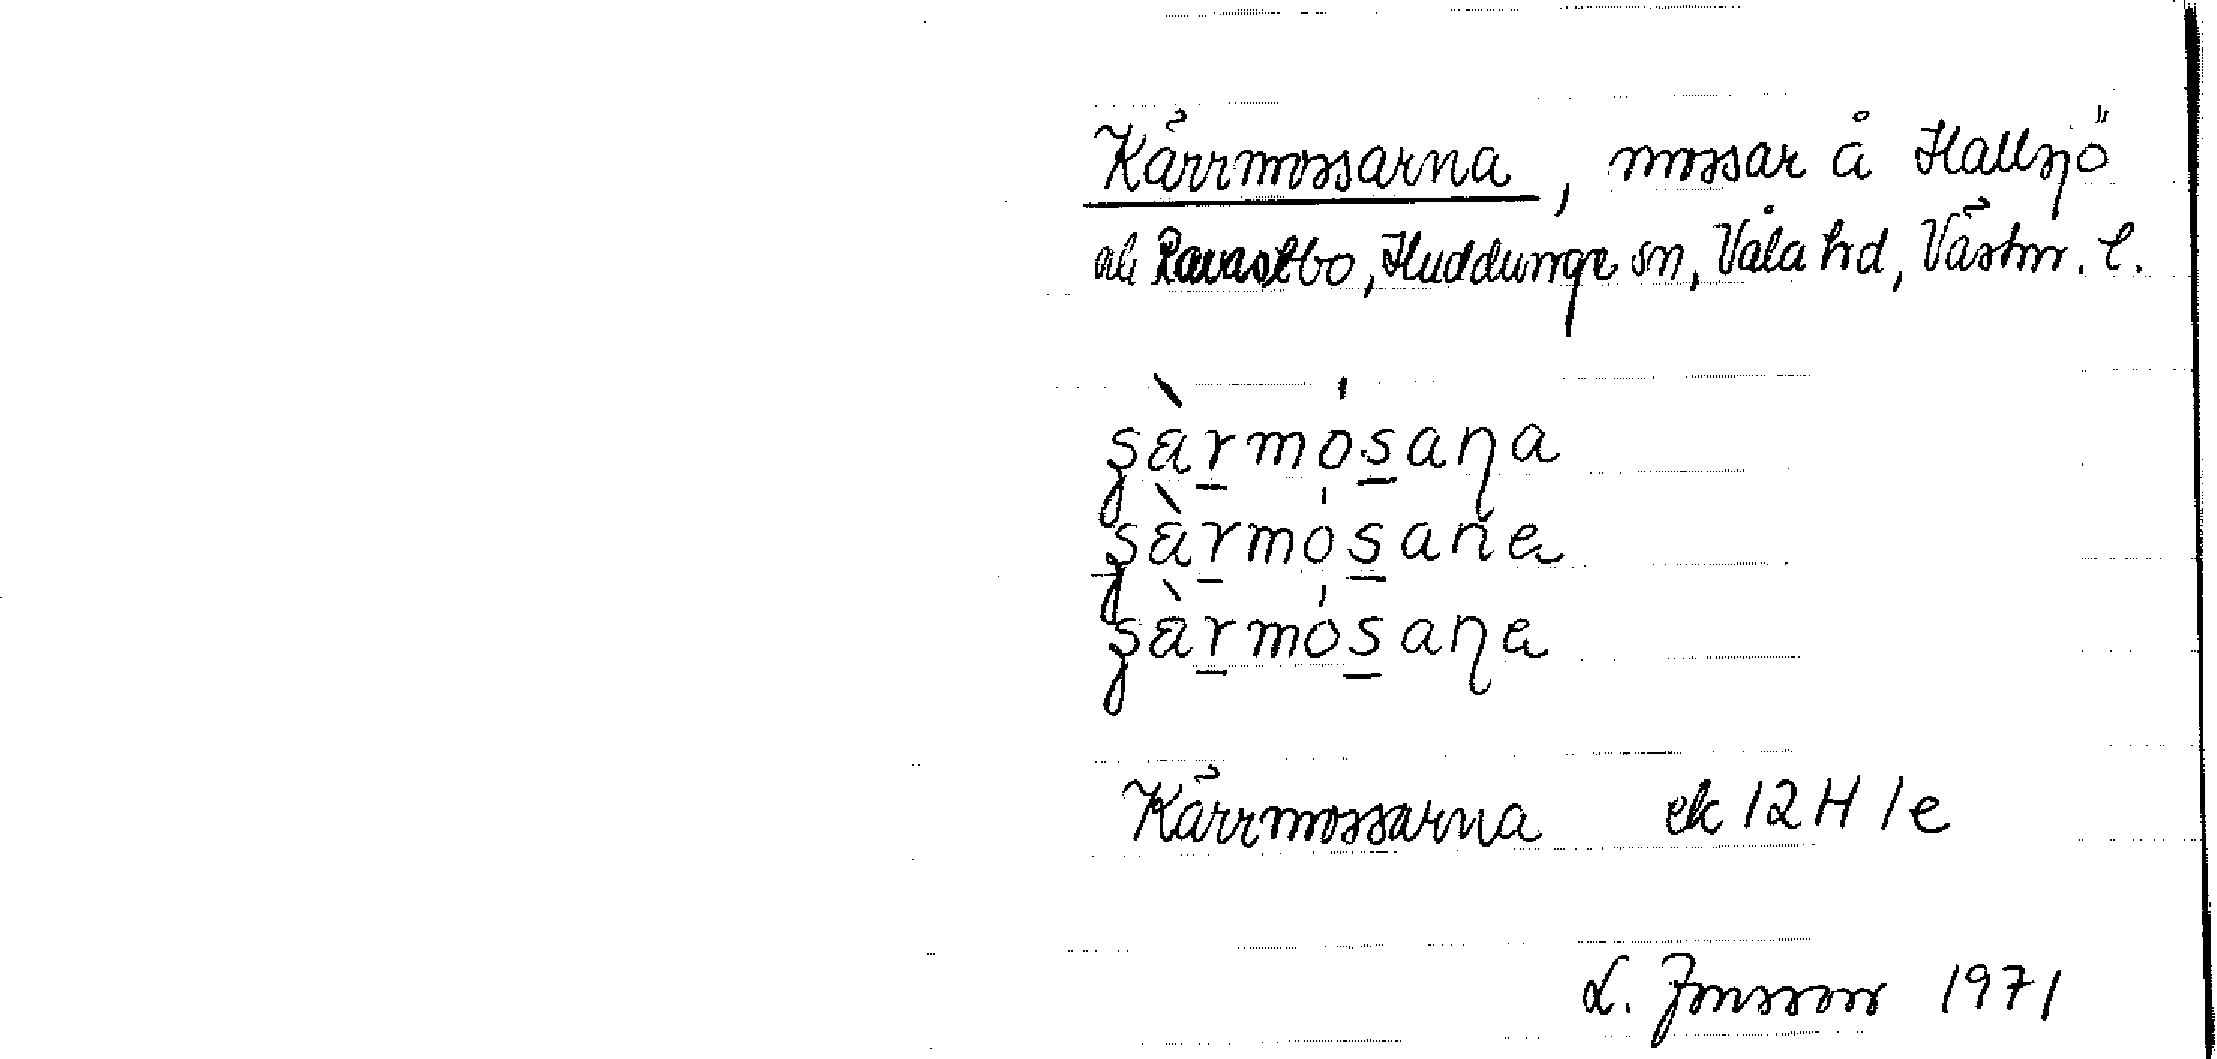 Kärrmossarna, mossar å Hallsjö
och Ravastbo, Huddunge sn, Våla hd, Västm. l.
ʂàrmósaɳa
ʂàrmósane
ʂàrmósaɳe
Kärrmossarna ek 12H 1e
L. Jonsson 1971